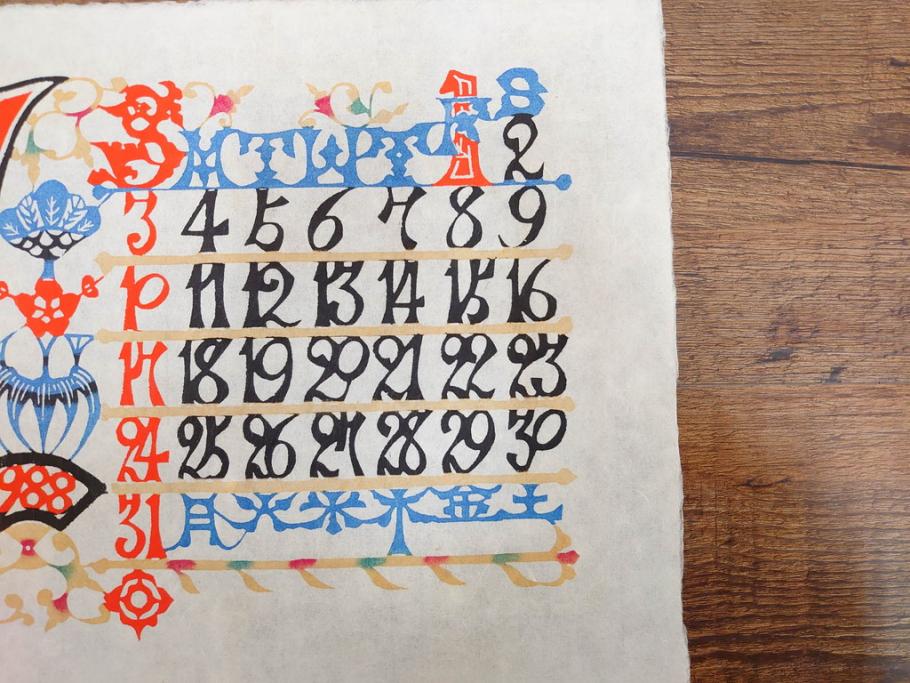 S M T W T F S
1 2
3 4 5 6 7 8 9
10 11 12 13 14 15 16
17 18 19 20 21 22 23
24 25 26 27 28 29 30
31 月 火 水 木 金 土
1988